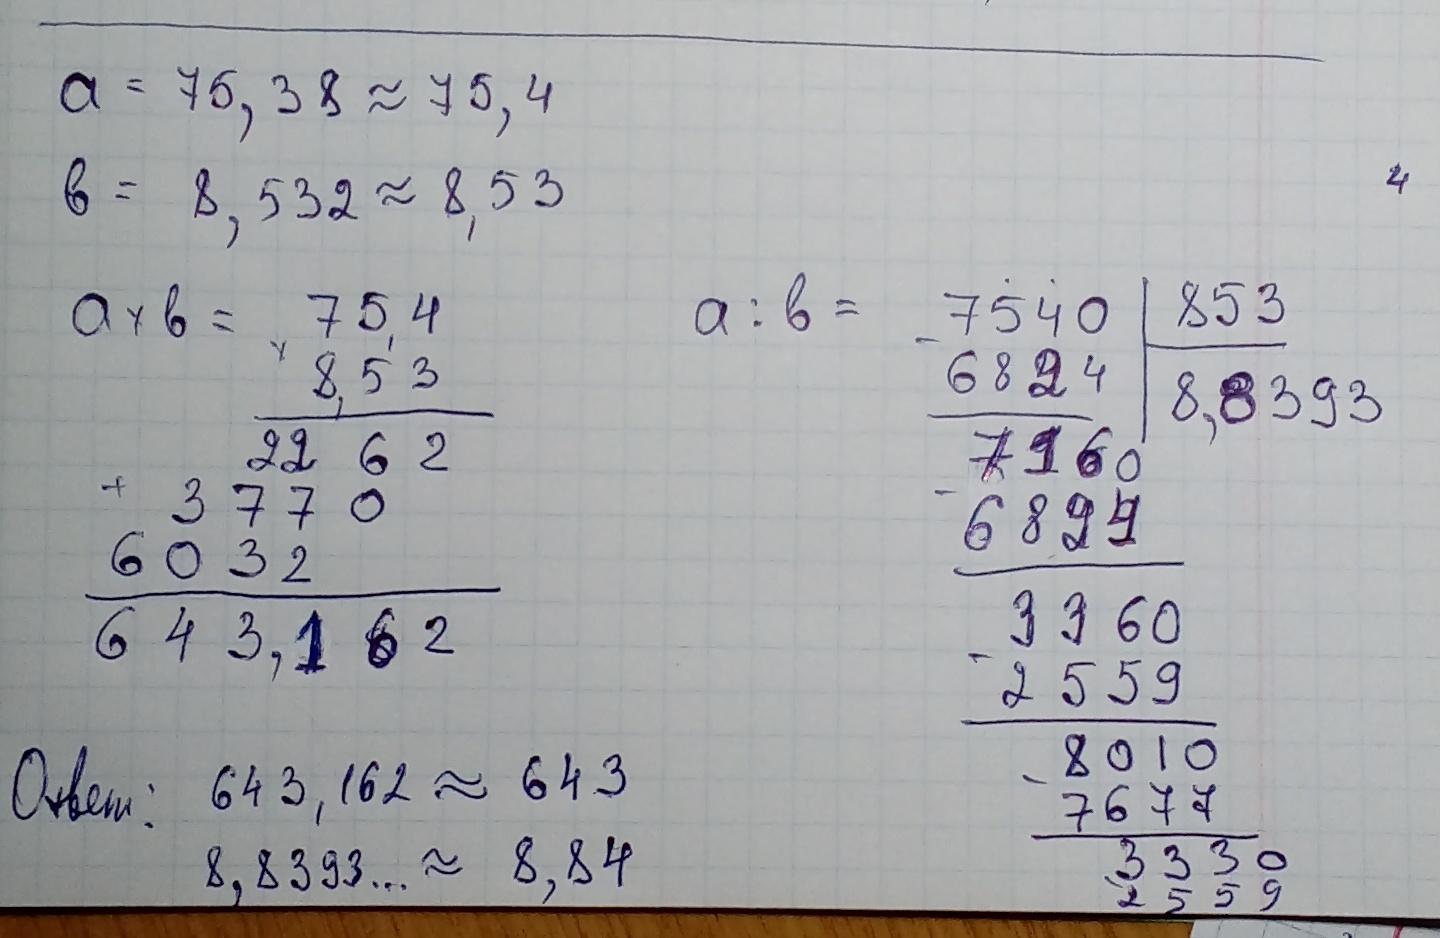 a = 75,38 ≈ 75,4
в = 8,532 ≈ 8,53
4
a × в = 75,4
× 8,53
2262
+ 3770
6032
643,162
a : в = 7540 | 853
- 6824 | 8,8393
7160
- 6824
3360
- 2559
8010
- 7677
3330
- 2559
Ответ: 643,162 ≈ 643
8,8393... ≈ 8,84